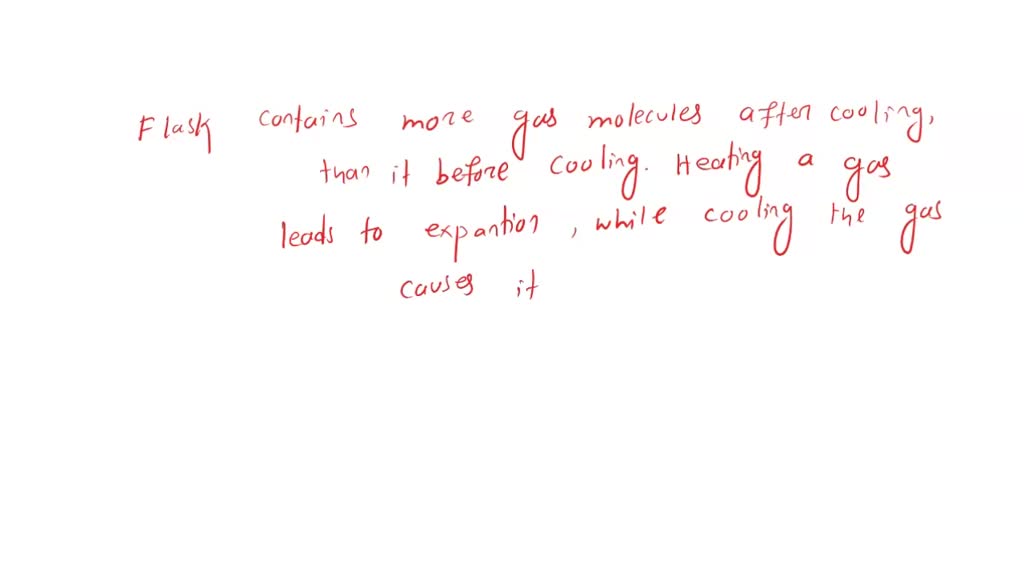 Flask contains more gas molecules after cooling,
than it before cooling. Heating a gas
leads to expantion, while cooling the gas
causes it